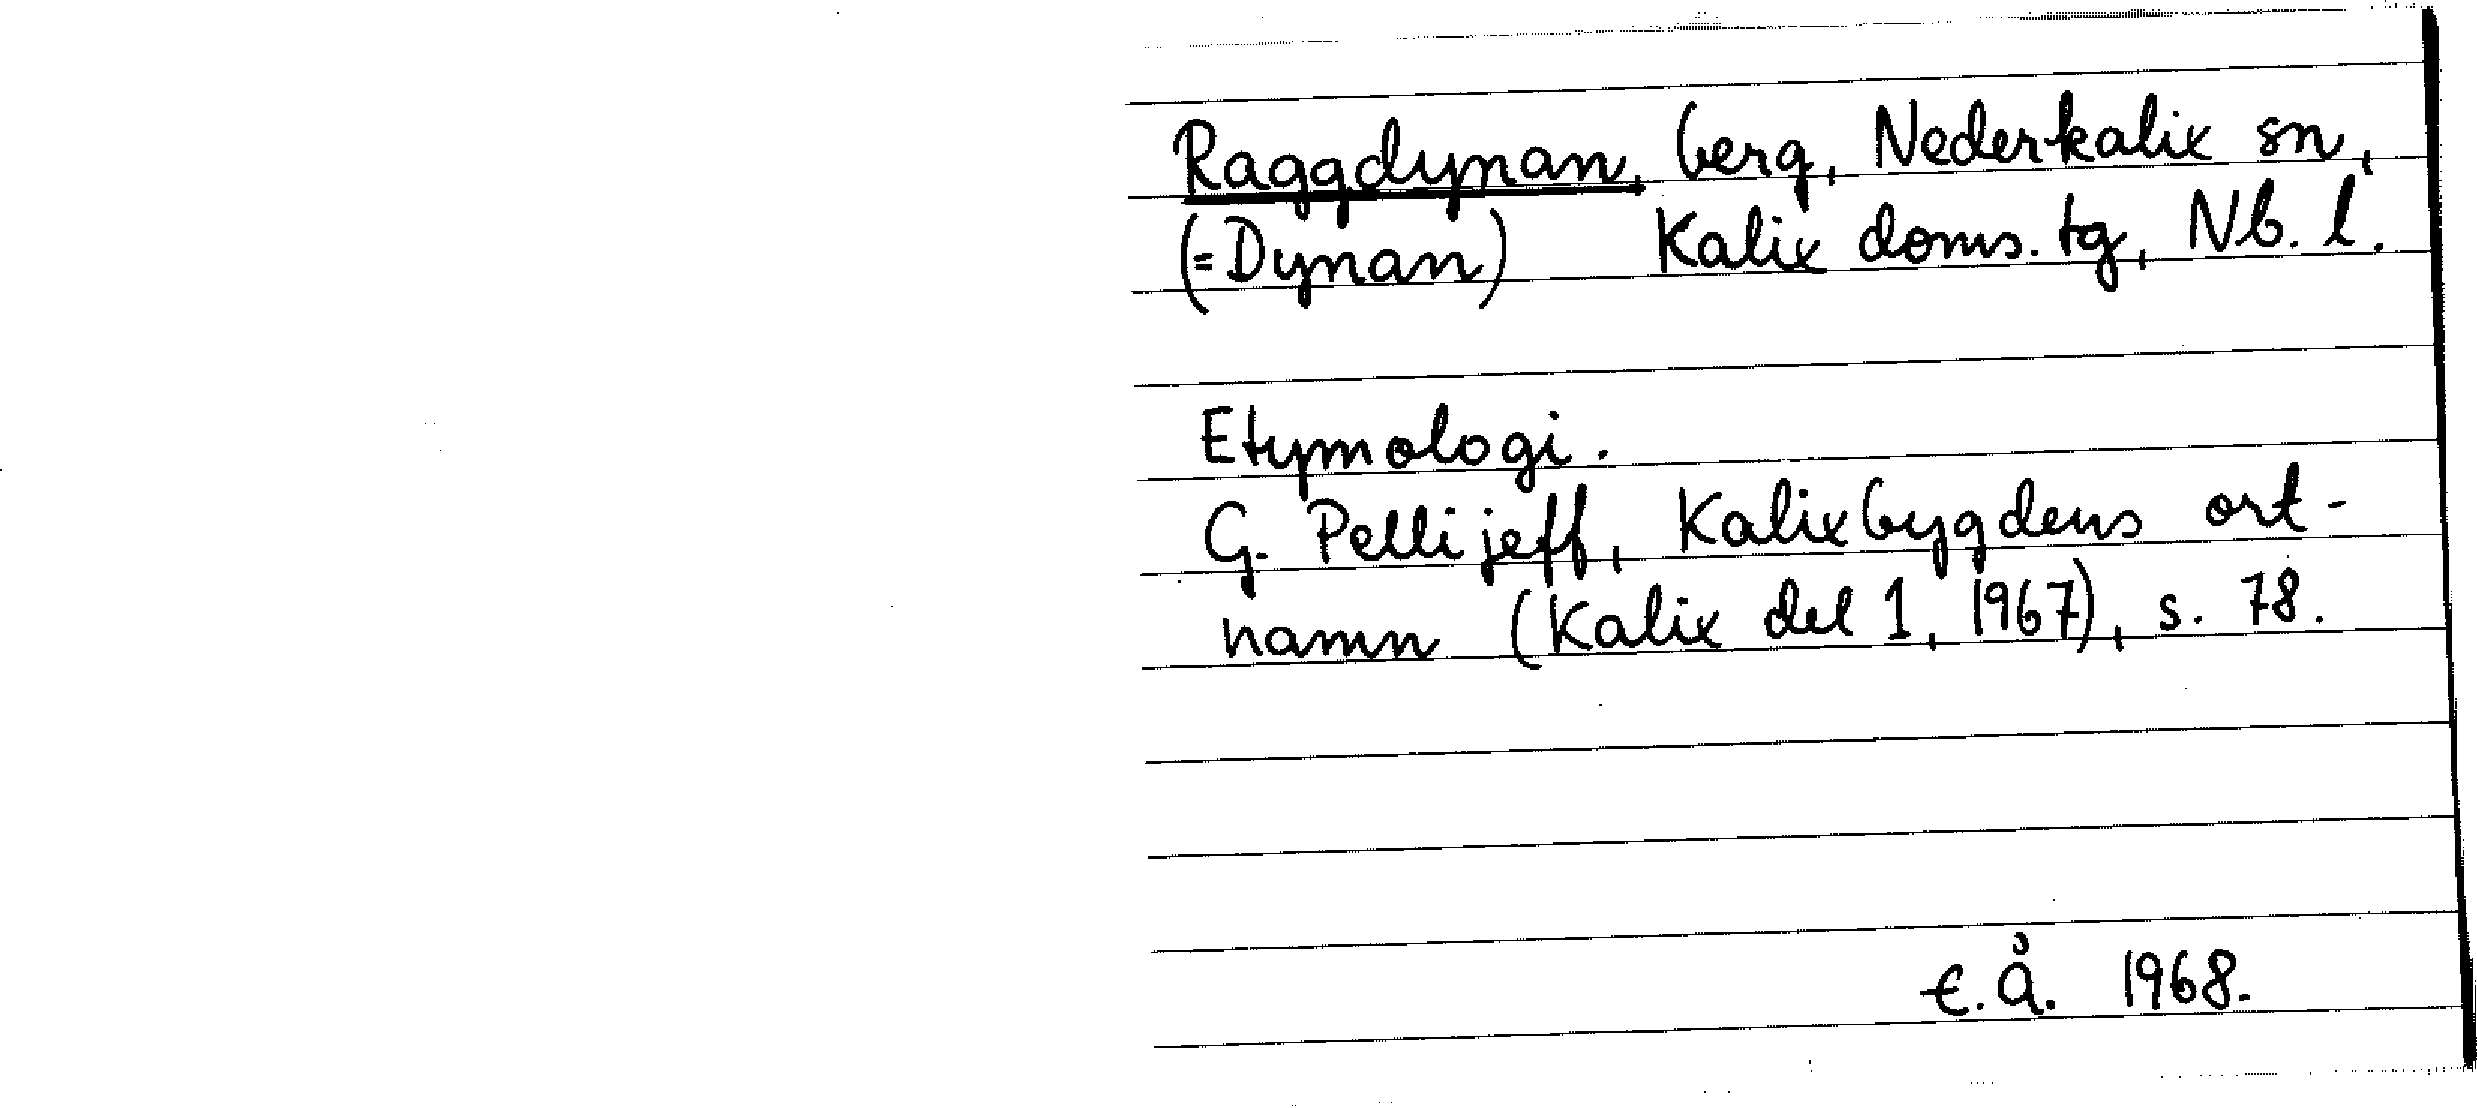 Raggdynan, berg, Nederkalix sn,
(=Dynan) Kalix doms. tg, Nb. l.
Etymologi.
G. Pellijeff, Kalixbygdens ort-
namn (Kalix del 1, 1967), s. 78.
E. Å. 1968.